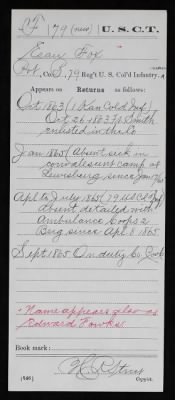 F | 79 (new) | U. S. C. T.
Esau Fox
Pvt, Co. B, 79 Reg't U. S. Col'd Infantry.
Appears on Returns as follows:
Oct 1863 (1 Kan Cold Inf)
Oct 26 1863 Ft Smith
enlisted in the Co
Jan 1865 Absent sick in
convalescent camp at
Lewisburg since Jan 1865
Apl to July 1865 (79 US Cld Inf)
absent detailed with
Ambulance Corps 2
Brig since Apl 8 1865
Sept 1865 On duty Co Cook
Name appears also as
Edward Fowkes
Book mark:
(546)
Copyist.